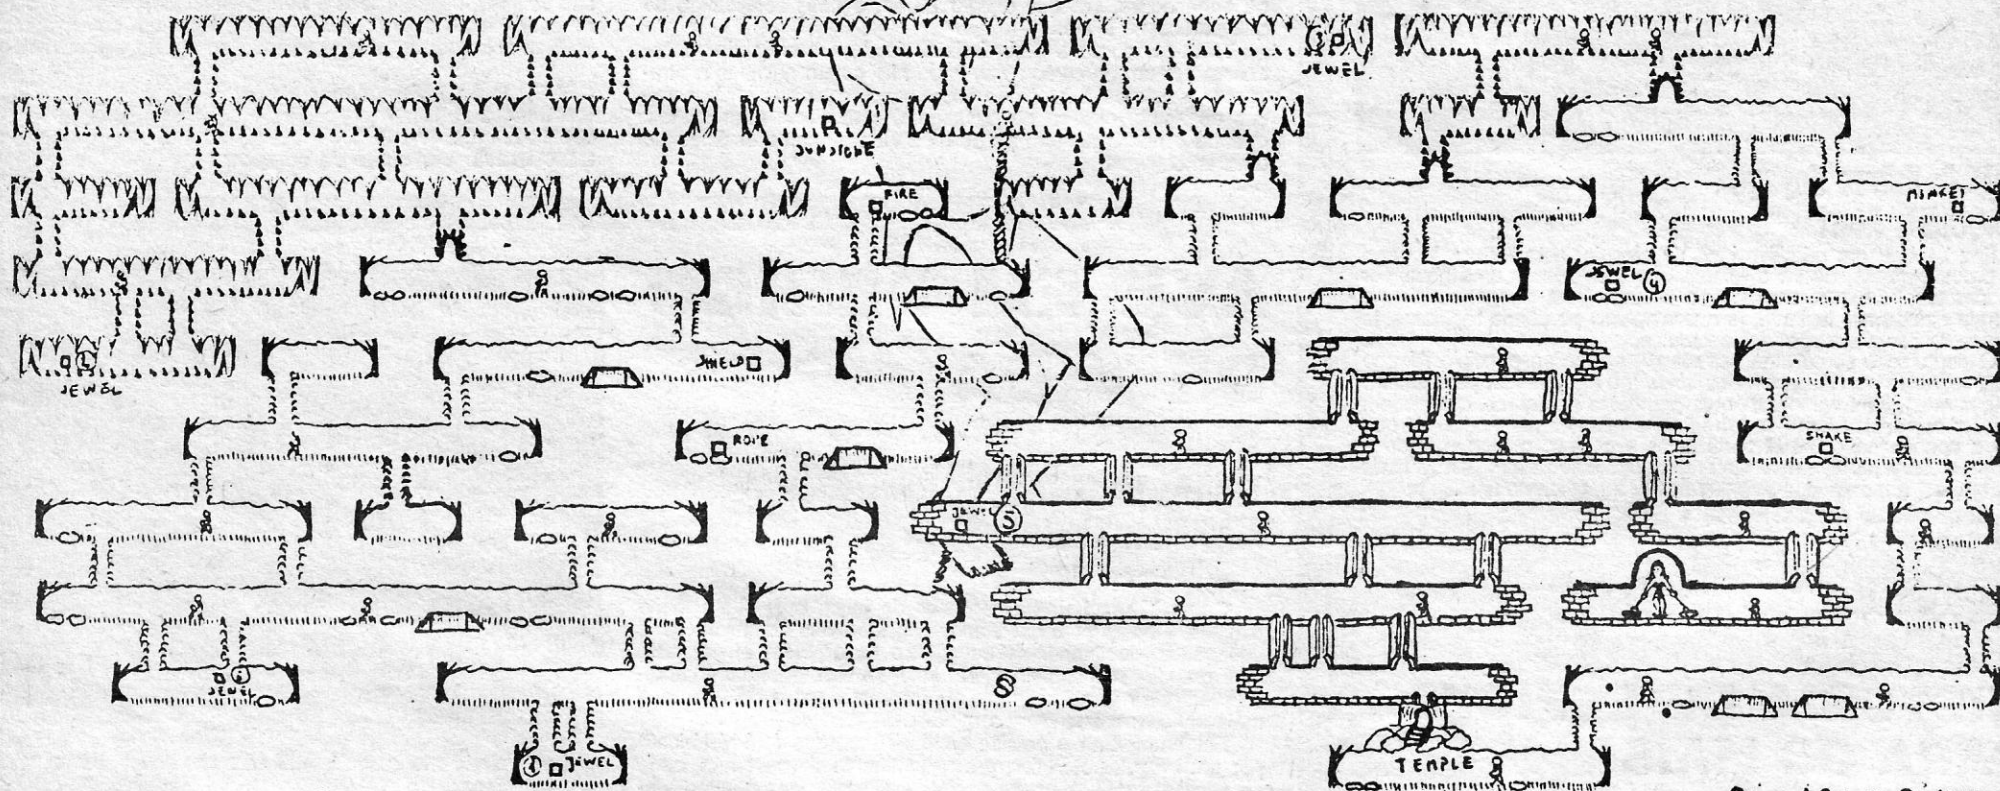 JEWEL
SUNSTONE
FIRE
JEWEL
4
JEWEL
SHIELD
ROPE
SNAKE
JEWEL
5
JEWEL
JEWEL
TEMPLE